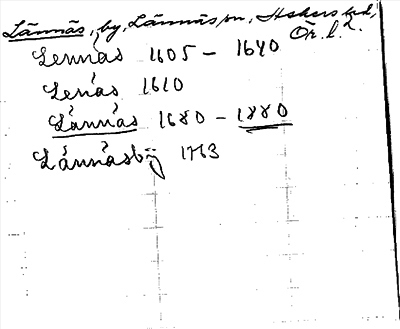 Lännäs, by, Lännäs sn, Askers hd,
Ör. l.
Lennäs 1605 – 1640
Lenäs 1610
Lännäs 1680 – 1880
Lännäsby 1763